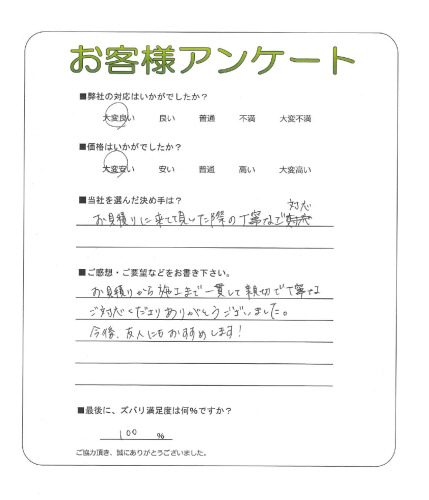 お客様アンケート
■弊社の対応はいかがでしたか？
大変良い 良い 普通 不満 大変不満
■価格はいかがでしたか？
大変安い 安い 普通 高い 大変高い
■当社を選んだ決め手は？
お見積りに来て頂した際の丁寧なご対応
■ご感想・ご要望などをお書き下さい。
お見積りから施工まで一貫して親切で丁寧な
ご対応くださりありがとうございました。
今後、友人にもおすすめします！
■最後に、ズバリ満足度は何%ですか？
100 %
ご協力頂き、誠にありがとうございました。